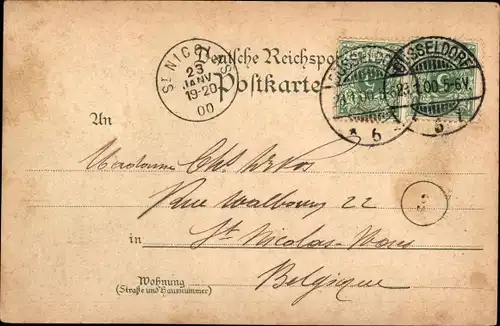 Deutsche Reichspost
Postkarte
ST NICOLAS
23
JANV
19-20
00
DÜSSELDORF
23.1.00.5-6V.
* 6 1
DÜSSELDORF
23.1.00.5-6V.
An
Madame Chs
Rue Walbourg 22
in St Nicolas-Waes
Belgique
Wohnung
(Straße und Hausnummer)